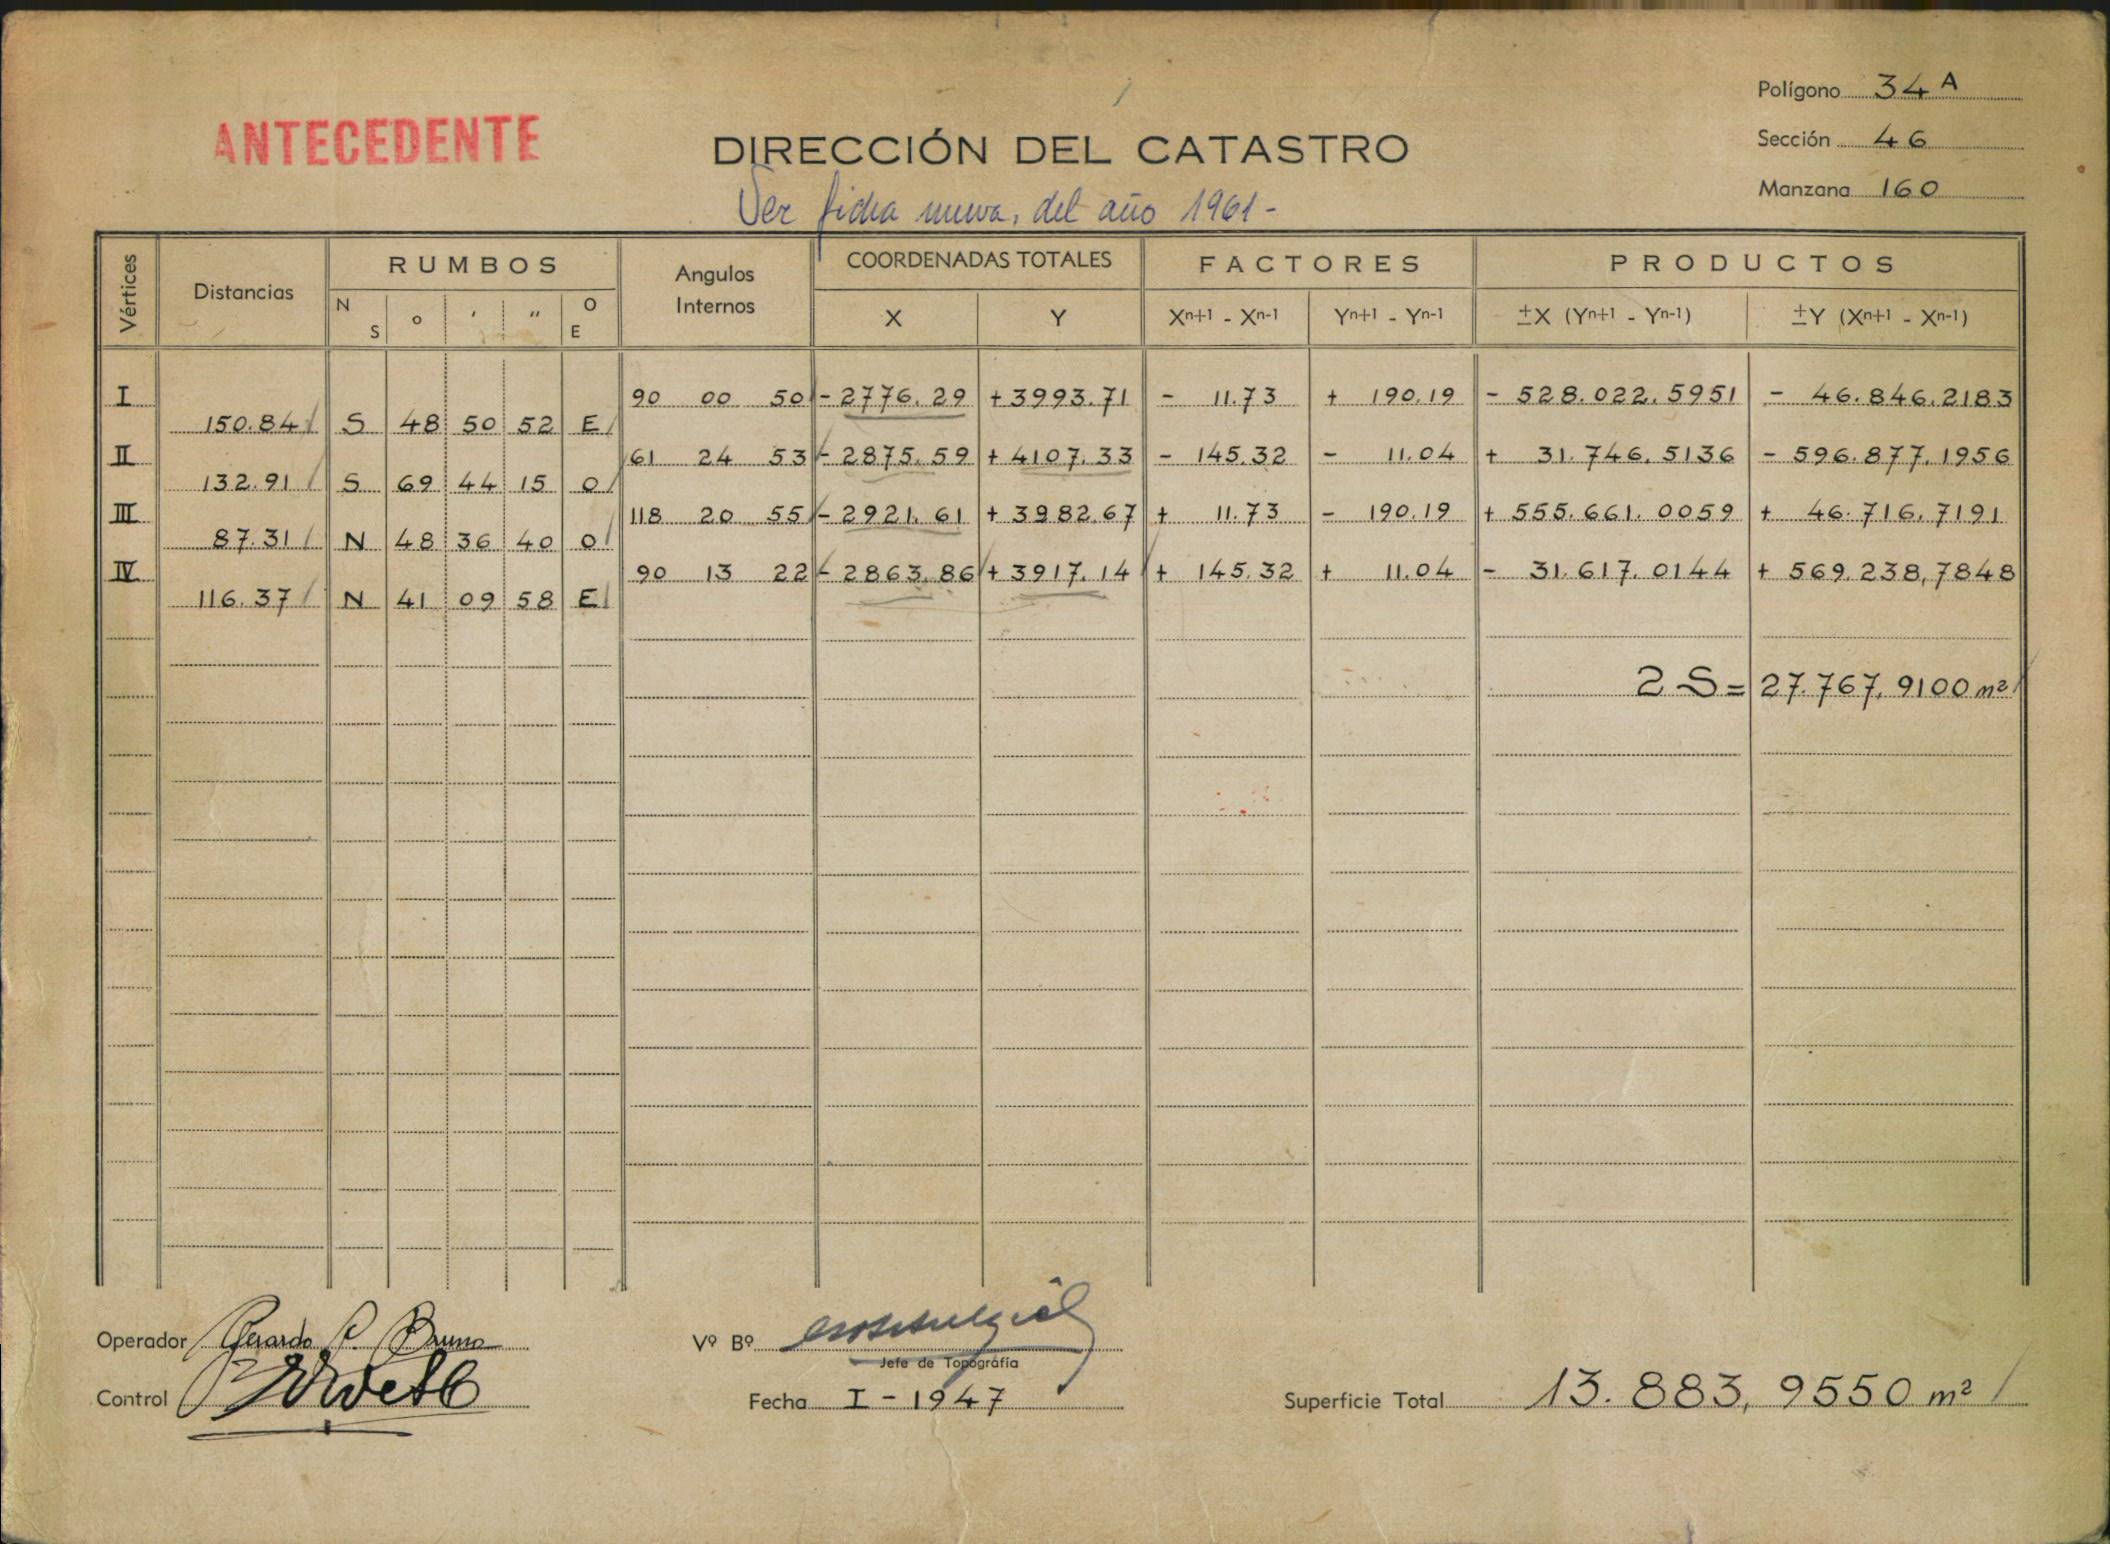 Polígono 34 A
ANTECEDENTE
DIRECCIÓN DEL CATASTRO
Sección 46
Manzana 160
Ver ficha nueva, del año 1961-
Vértices Distancias RUMBOS Angulos Internos COORDENADAS TOTALES FACTORES PRODUCTOS
N S o ' " O E X Y Xn+1 - Xn-1 Yn+1 - Yn-1 ±X (Yn+1 - Yn-1) ±Y (Xn+1 - Xn-1)
I 90 00 50 - 2776.29 + 3993.71 - 11.73 + 190.19 - 528.022.5951 - 46.846.2183
150.84 S 48 50 52 E
II 61 24 53 - 2875.59 + 4107.33 - 145.32 - 11.04 + 31.746.5136 - 596.877.1956
132.91 S 69 44 15 O
III 118 20 55 - 2921.61 + 3982.67 + 11.73 - 190.19 + 555.661.0059 + 46.716.7191
87.31 N 48 36 40 O
IV 90 13 22 - 2863.86 + 3917.14 + 145.32 + 11.04 - 31.617.0144 + 569.238,7848
116.37 N 41 09 58 E
2 S = 27.767,9100 m²
Operador Gerardo C. Bruno
Vº Bº
Jefe de Topografía
Control
Fecha I - 1947
Superficie Total 13.883,9550 m²